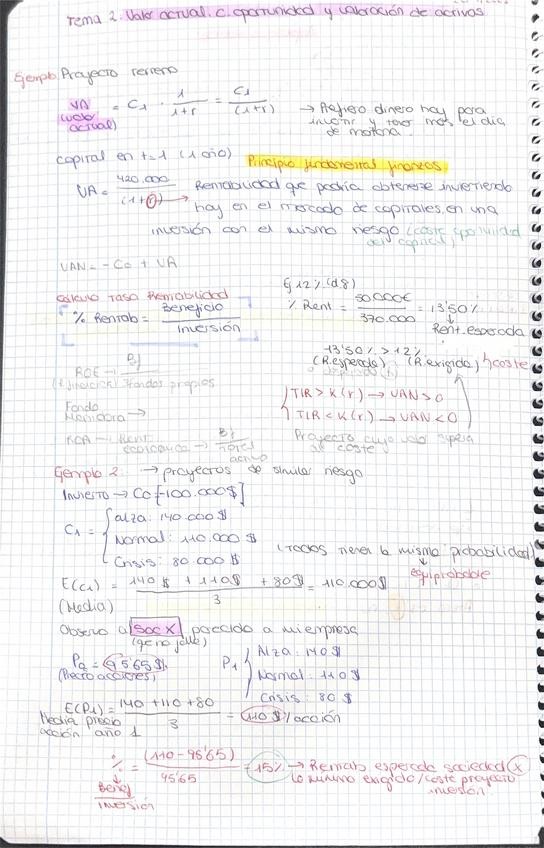 Tema 2. Valor actual. C. oportunidad y valoración de activos
Ejemplo Proyecto terreno
VA = C1 · 1/(1+r) = C1/(1+r) → Prefiero dinero hoy para
(valor actual) invertir y tener más el día
de mañana.
Capital en t=1 (1 año) Principio fundamental finanzas
VA = 420.000/(1+r) → Rentabilidad que podría obtenerse invirtiendo
hoy en el mercado de capitales, en una
inversión con el mismo riesgo (coste oportunidad
del capital)
VAN = -Co + VA
Cálculo Tasa Rentabilidad
Ej 12% (d8)
% Rentab = Beneficio/inversión
% Rent = 50.000€/370.000 = 13'50%
Rent. esperada
13'50% > 12%
(R. esperada) (R. exigida) coste
ROE → Bº/Fondos propios
(R. financiera)
TIR > K(r) → VAN > 0
TIR < K(r) → VAN < 0
Fondo
Maniobra →
ROA → Rent. económica → Bº/Total activo
Proyecto cuyo valor supera
coste
Ejemplo 2: → proyectos de similar riesgo
Invierto → Co [-100.000$]
C1 =
Alza: 140.000$
Normal: 110.000$
Crisis: 80.000$
(todos tienen la misma probabilidad)
equiprobable
E(C1) = (140$ + 110$ + 80$)/3 = 110.000$
(Media)
Observo a Soc X parecido a mi empresa
P0 = 95'65$
(Precio acciones)
P1
Alza: 140$
Normal: 110$
Crisis: 80$
E(P1) = (140+110+80)/3 = 110$/acción
Media precio
acción año 1
% = (110-95'65)/95'65 = 15% → Rentab esperada sociedad X
Benef/inversión
lo mínimo exigido/coste proyecto
inversión.